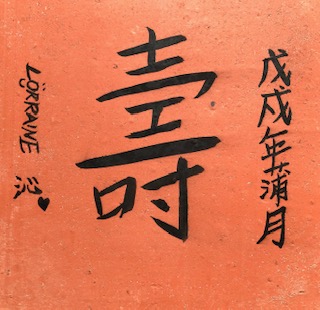 戊戌年蒲月
壽
LÖRRAINE